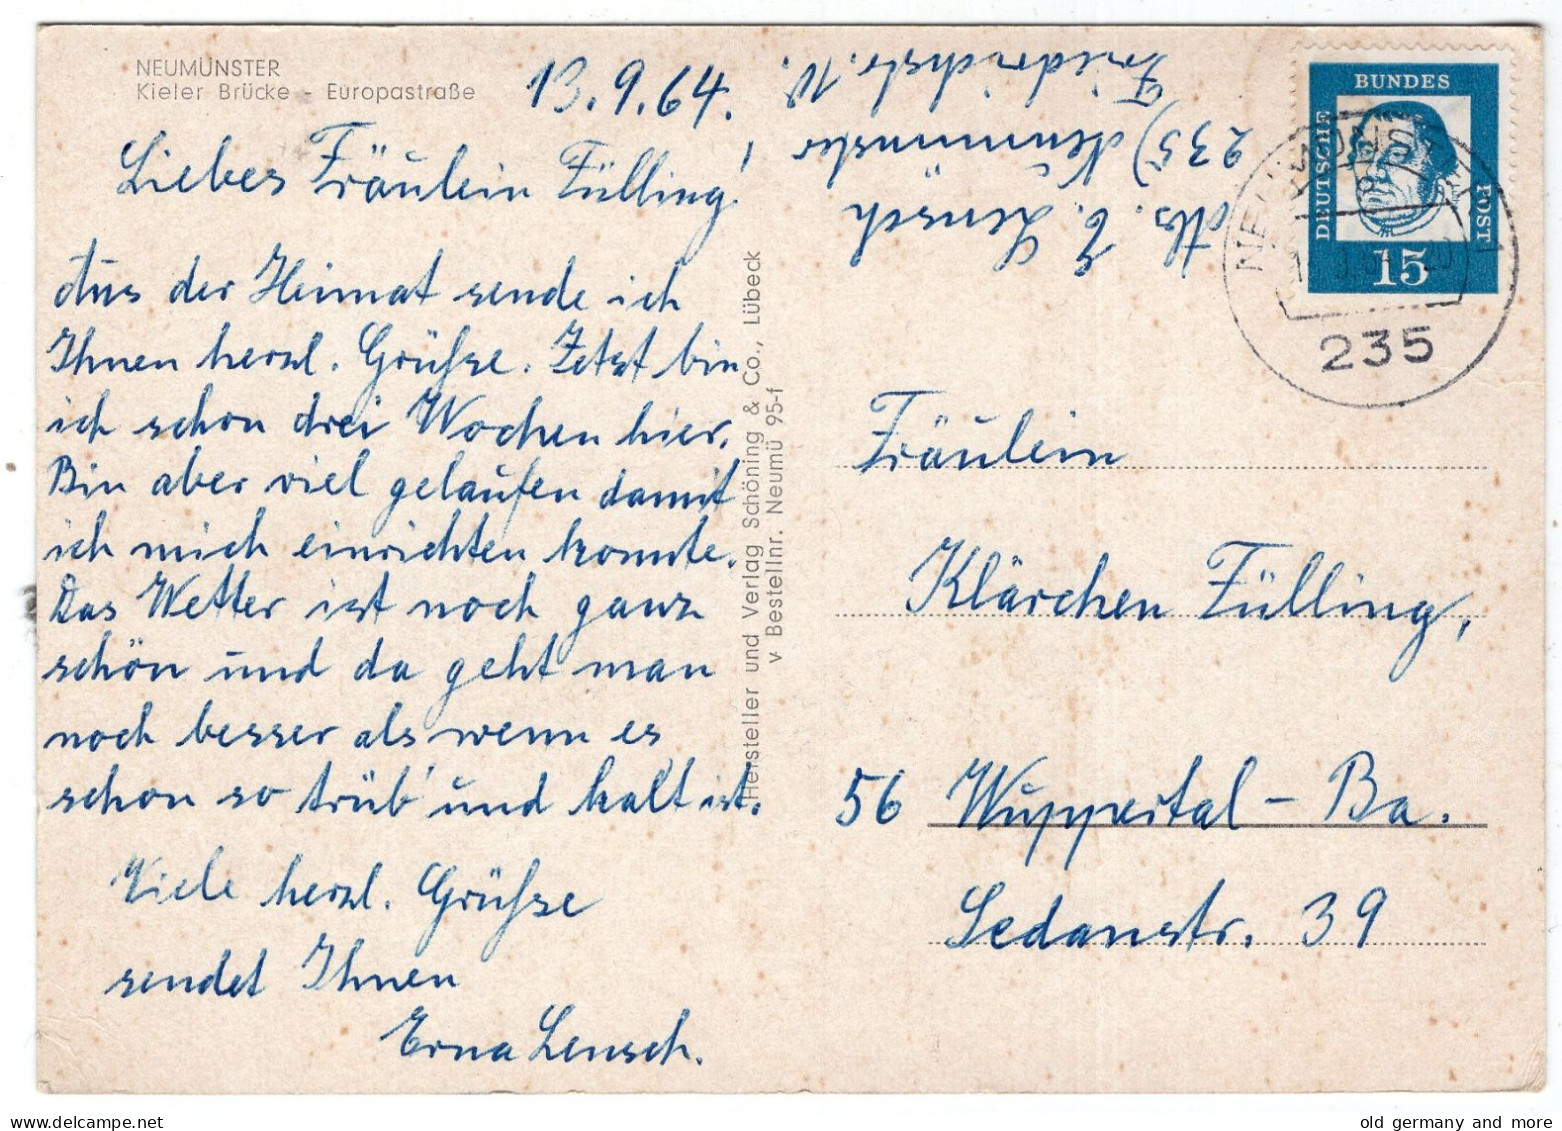 NEUMÜNSTER
Kieler Brücke - Europastraße
13.9.64.
Liebes Fräulein Fülling!
Aus der Heimat sende ich
Ihnen herzl. Grüße. Jetzt bin
ich schon drei Wochen hier.
Bin aber viel gelaufen damit
ich mich einrichten konnte.
Das Wetter ist noch ganz
schön und da geht man
noch besser als wenn es
schon so trüb und kalt ist.
Viele herzl. Grüße
sendet Ihnen
Erna Lensch.
Hersteller und Verlag Schöning & Co., Lübeck
v Bestellnr. Neumü 95-f
Abs. E. Lensch
235) Neumünster
Friedrichstr. 10.
DEUTSCHE
BUNDES
POST
15
235
Fräulein
Klärchen Fülling,
56 Wuppertal - Ba.
Sedanstr. 39
old germany and more